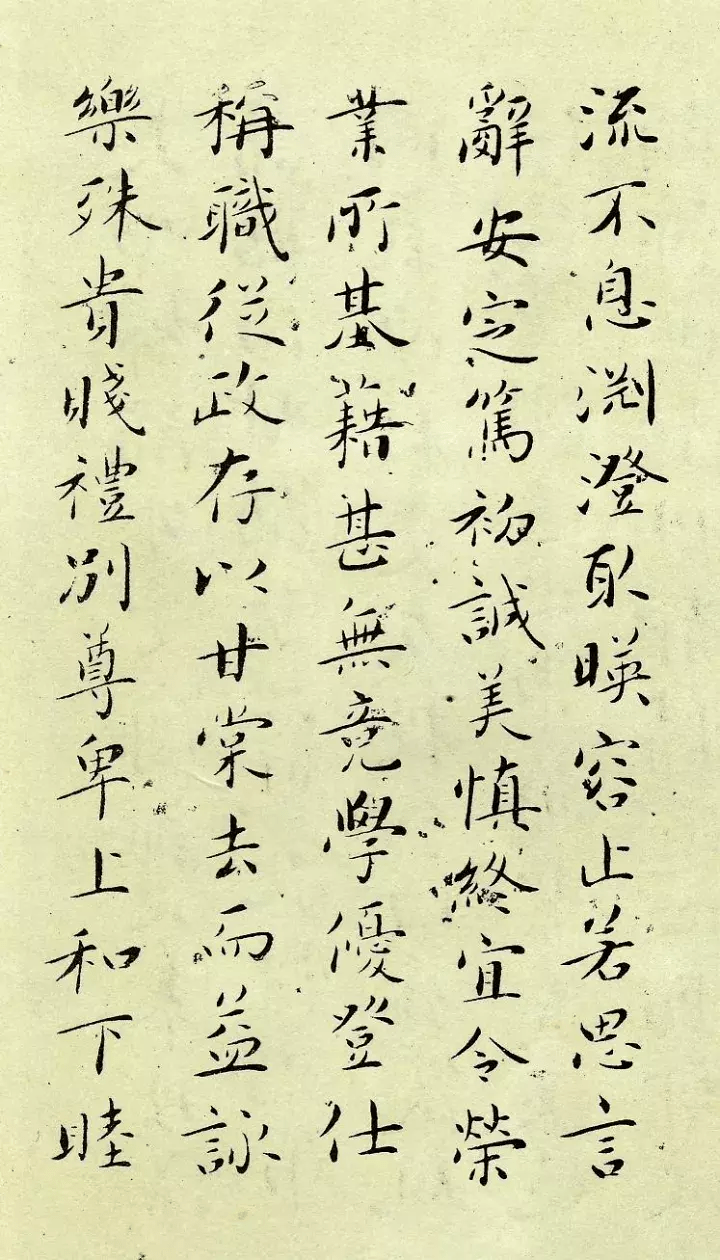 流不息淵澄取暎容止若思言
辭安定篤初誠美慎終宜令榮
業所基籍甚無竟學優登仕
稱職從政存以甘棠去而益詠
樂殊貴賤禮別尊卑上和下睦